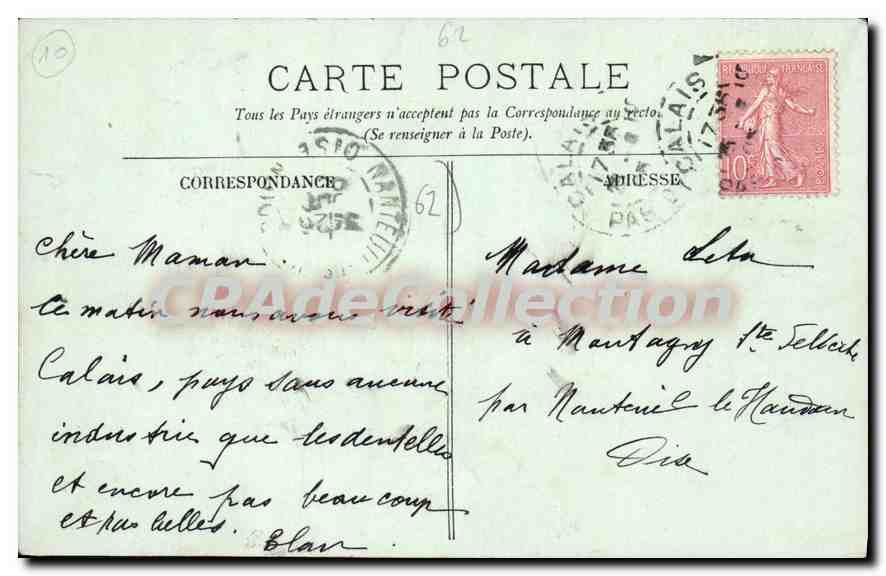 10
62
CARTE POSTALE
Tous les Pays étrangers n'acceptent pas la Correspondance au recto
(Se renseigner à la Poste).
RÉPUBLIQUE FRANÇAISE
10c
POSTES
CALAIS
PAS
NANTEUIL
OISE
CORRESPONDANCE
62
ADRESSE
Chère Maman.
Ce matin nous avons visité
Calais, pays sans aucune
industrie que les dentelles
et encore pas beaucoup
et pas belles.
Madame
à Montagny Ste Félicité
par Nanteuil le Haudouin
Oise
CPAdeCollection